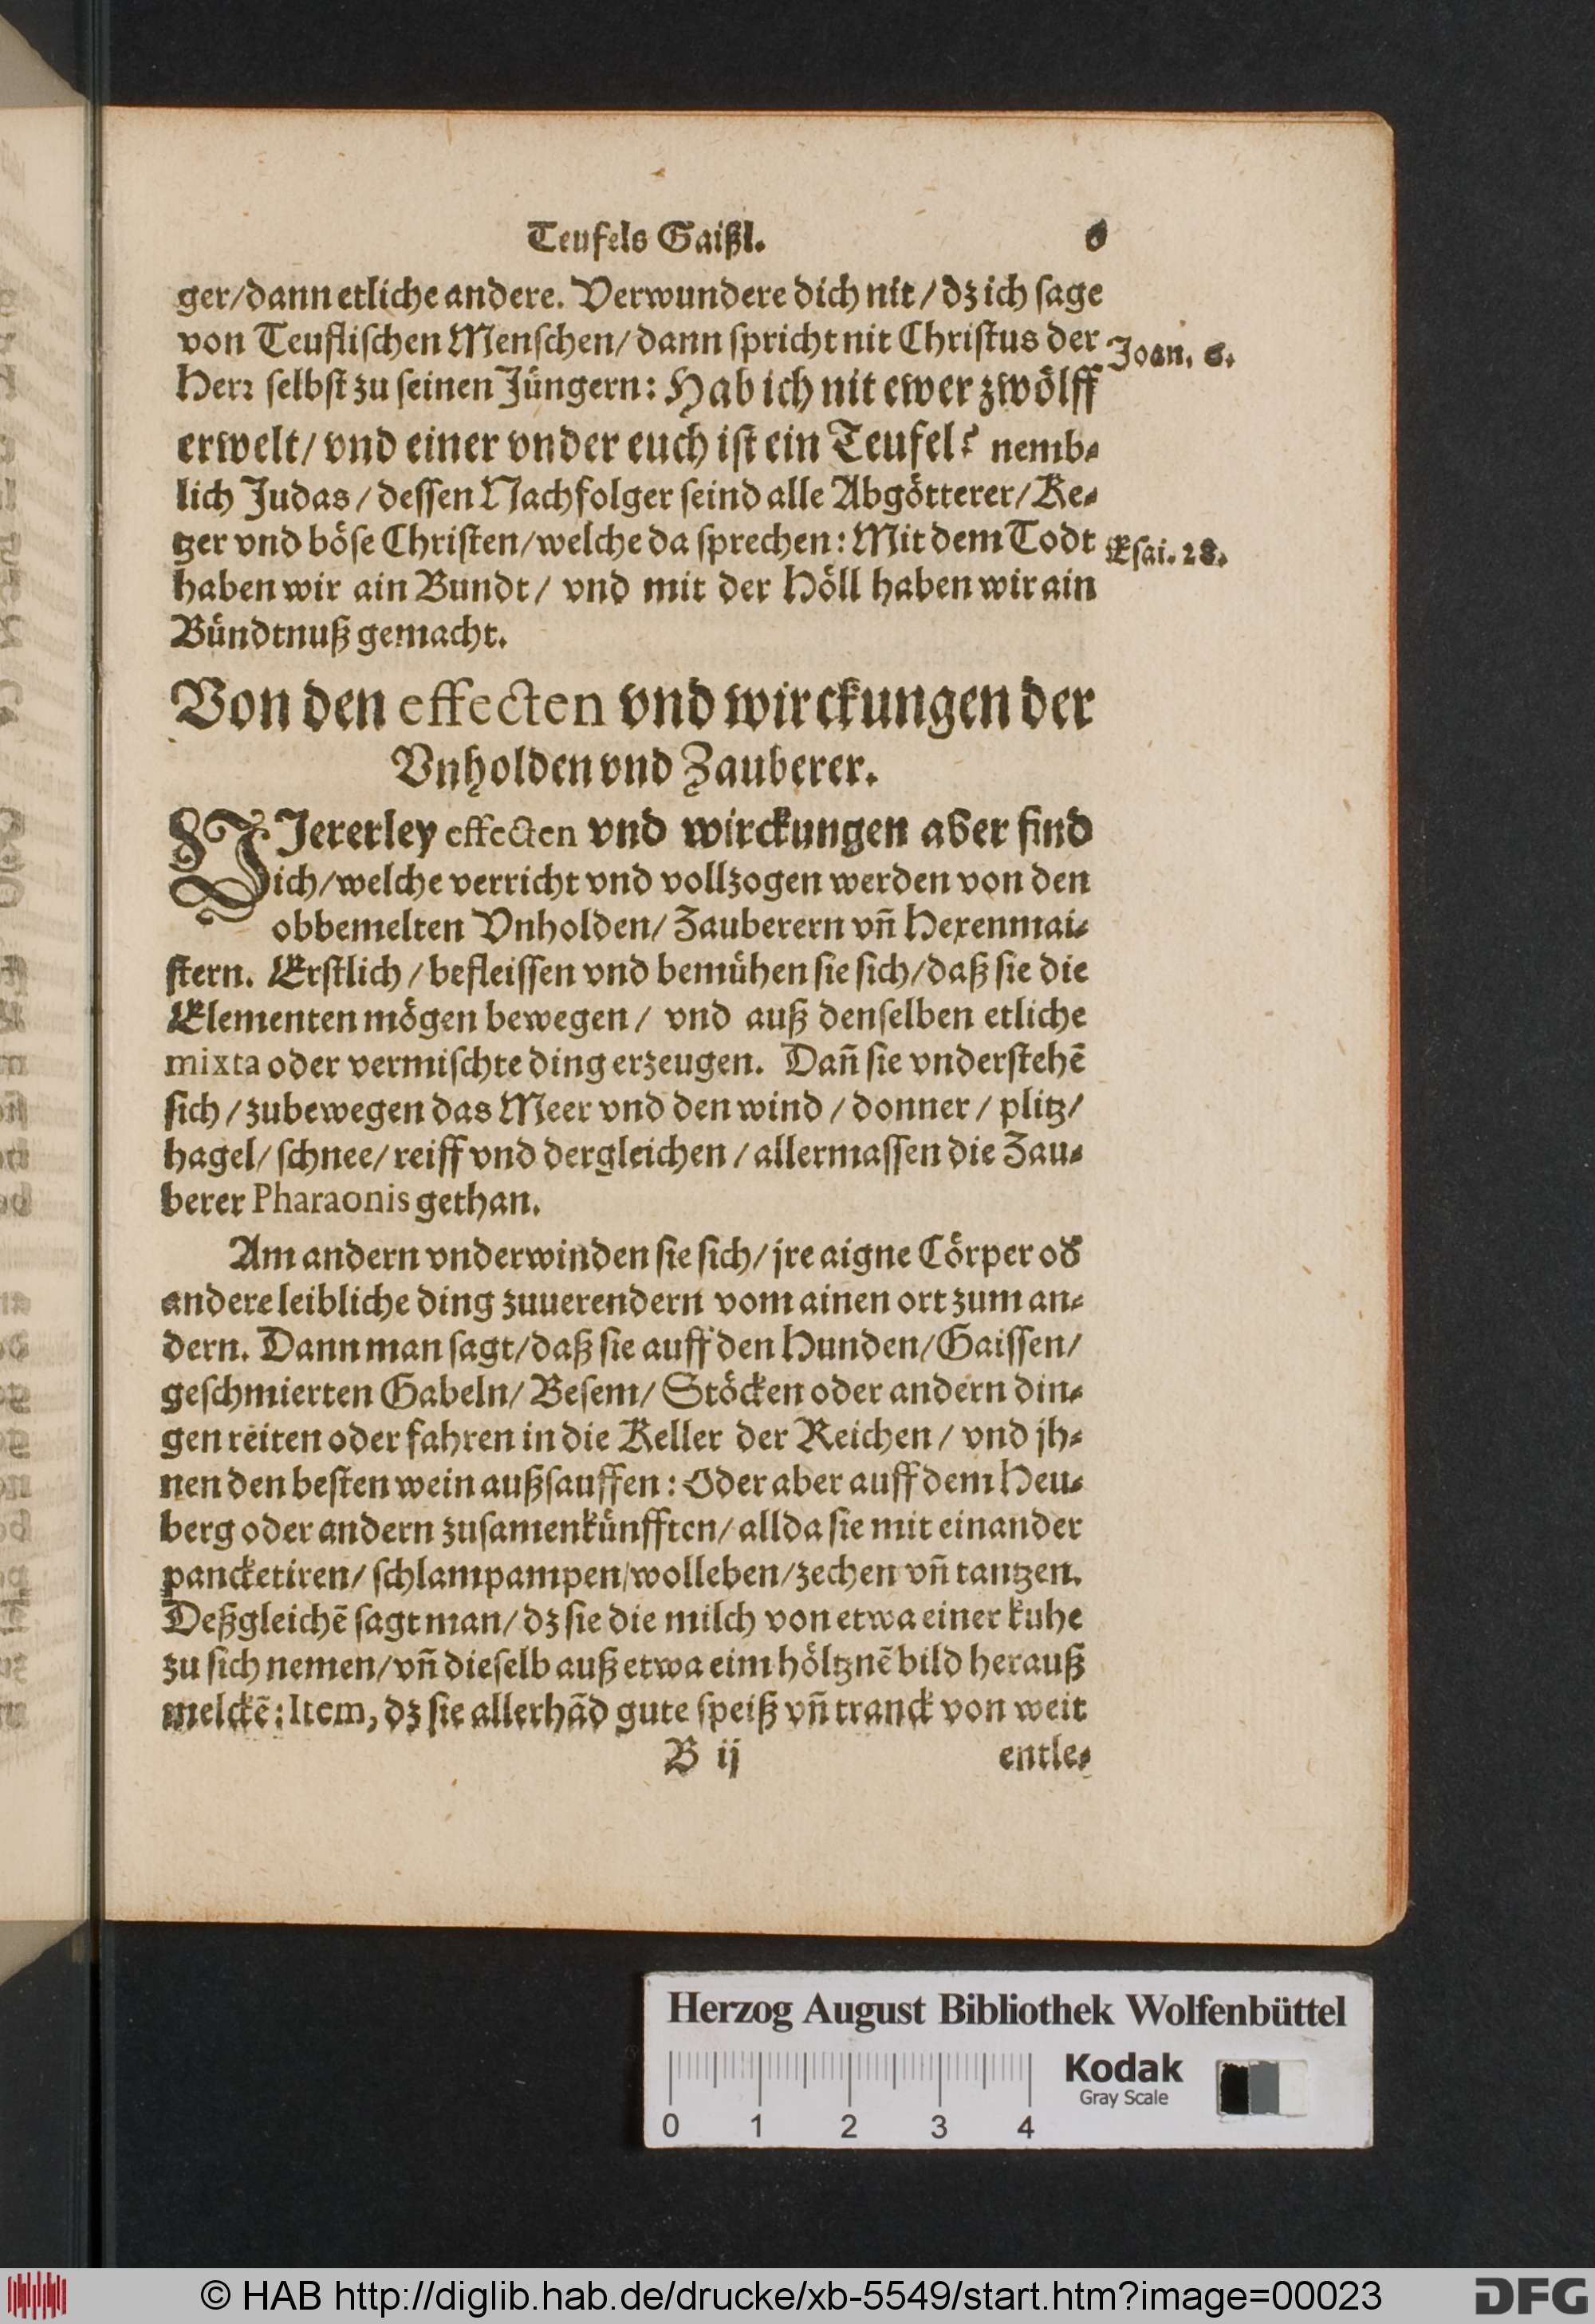 Teufels Gaißl. 6
ger/dann etliche andere. Verwundere dich nit/dz ich ſage
von Teufliſchen Menſchen/dann ſpricht nit Chriſtus der
Joan. 6.
Herꝛ ſelbſt zu ſeinen Jüngern: Hab ich nit ewer zwölff
erwelt/vnd einer vnder euch iſt ein Teufel? nemb⸗
lich Judas/deſſen Nachfolger ſeind alle Abgötterer/Ke⸗
tzer vnd böſe Chriſten/welche da ſprechen: Mit dem Todt
Eſai. 28.
haben wir ain Bundt/ vnd mit der Höll haben wir ain
Bündtnuß gemacht.
Von den effecten vnd wirckungen der
Vnholden vnd Zauberer.
VJererley effecten vnd wirckungen aber find
ich/welche verricht vnd vollzogen werden von den
obbemelten Vnholden/Zauberern vñ Hexenmai⸗
ſtern. Erſtlich/befleiſſen vnd bemühen ſie ſich/daß ſie die
Elementen mögen bewegen/ vnd auß denſelben etliche
mixta oder vermiſchte ding erzeugen. Dañ ſie vnderſtehẽ
ſich/zubewegen das Meer vnd den wind/donner/plitz/
hagel/ſchnee/reiff vnd dergleichen/allermaſſen die Zau⸗
berer Pharaonis gethan.
Am andern vnderwinden ſie ſich/jre aigne Cörper oď
andere leibliche ding zuuerendern vom ainen ort zum an⸗
dern. Dann man ſagt/daß ſie auff den Hunden/Gaiſſen/
geſchmierten Gabeln/Beſem/Stöcken oder andern din⸗
gen reiten oder fahren in die Keller der Reichen/ vnd jh⸗
nen den beſten wein außſauffen: Oder aber auff dem Heu⸗
berg oder andern zuſamenkünfften/allda ſie mit einander
pancketiren/ſchlampampen/wolleben/zechen vñ tantzen.
Deßgleichẽ ſagt man/dz ſie die milch von etwa einer kuhe
zu ſich nemen/vñ dieſelb auß etwa eim höltznẽ bild herauß
melckẽ: Item, dz ſie allerhãd gute ſpeiß vñ tranck von weit
B ij entle⸗
Herzog August Bibliothek Wolfenbüttel
Kodak
Gray Scale
0 1 2 3 4
© HAB http://diglib.hab.de/drucke/xb-5549/start.htm?image=00023
DFG